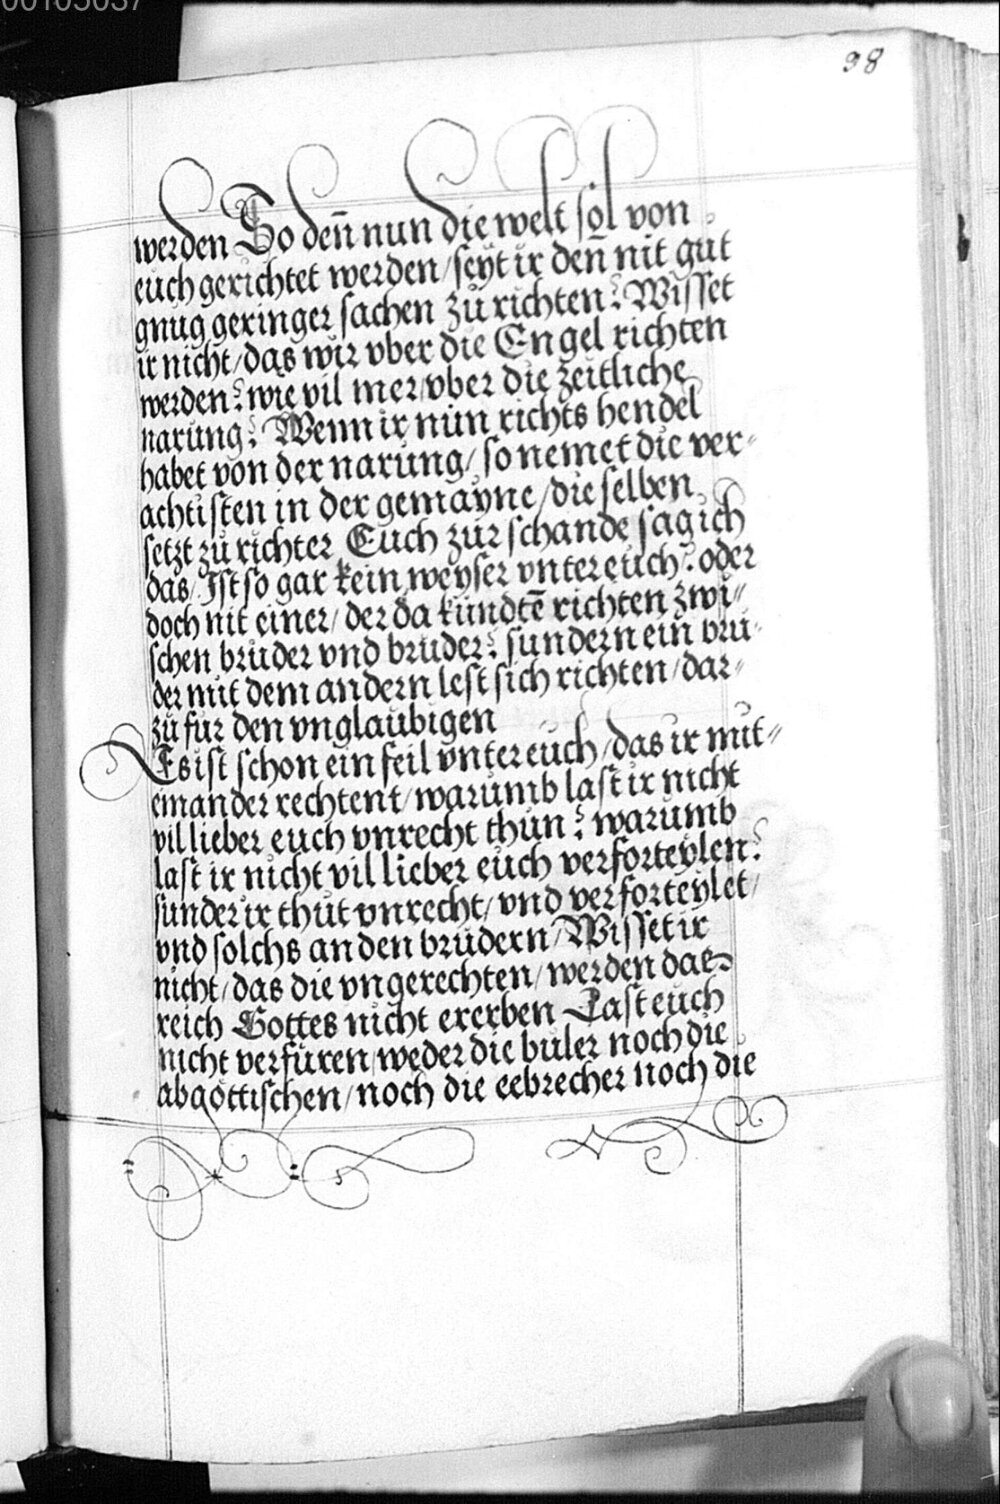 00105037
98
werden So den̄ nun die welt sol von
euch gerichtet werden / seyt ir den̄ nit gut
gnug geringer sachen zů richten? Wisset
ir nicht / das wir vber die Engel richten
werden? wie vil mer / vber die zeitliche
narung? Wenn ir nun richts hendel
habet von der narung / so nemet die ver⸗
achtisten in der gemayne / die selben
setzt zů richter Euch zur schande sag ich
das / Ist so gar kein weyser vnter euch? oder
doch nit einer / der da kundtē richten zwi⸗
schen brůder vnd brůder? sundern ein brů⸗
der mit dem andern lest sich richten / dar⸗
zů fur den vnglaubigen
Es ist schon ein feil vnter euch / das ir mit⸗
einander rechtent / warumb last ir nicht
vil lieber euch vnrecht thun? warumb
last ir nicht vil lieber euch verforteylen?
sunder ir thut vnrecht / vnd verforteylet /
vnd solchs an den brůdern / Wisset ir
nicht / das die vngerechten / werden das
reich Gottes nicht ererben Last euch
nicht verfüren / weder die buler noch die
abgöttischen / noch die eebrecher noch die